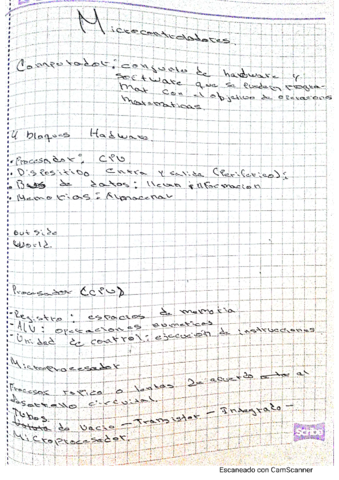 Microcontroladores.
Computador: conjunto de hardware y
software que se pueden progra-
mar con el objetivo de operaciones
matematicas
4 bloques Hadware
• Procesador: CPU
• Dispositivo entra y salida (Periferico);
• Bus de datos: llevan informacion
• Memorias: Almacenar
outside
World.
Procesador (CPU)
- Registro: espacios de memoria
- ALU: operaciones numericas
- Unidad de control: ejecucion de instrucciones
Microprocesador
Procesos rapido o lentos De acuerdo al
desarrollo circuital.
Tubos
de Vacio - Transistor - Integrado -
Microprocesador.
Scribe
Escaneado con CamScanner